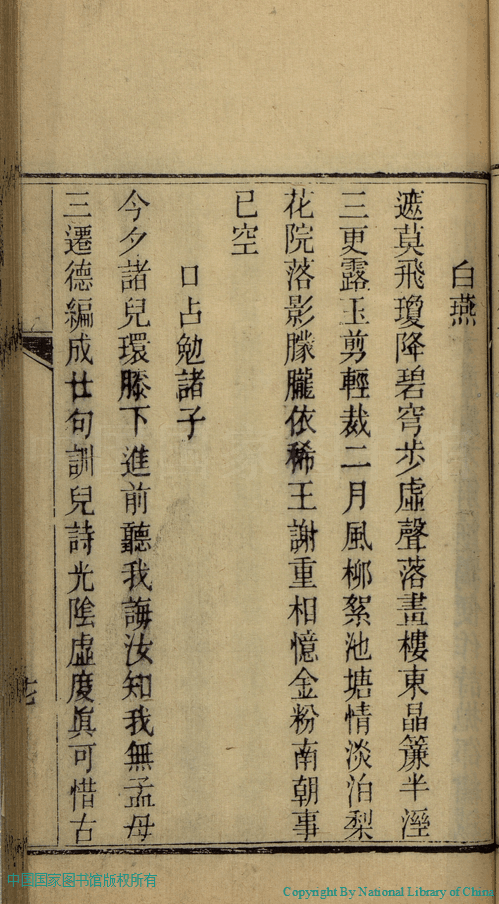 白燕
遮莫飛瓊降碧穹步虛聲落畫樓東晶簾半溼
三更露玉剪輕裁二月風柳絮池塘情淡泊梨
花院落影朦朧依稀王謝重相憶金粉南朝事
已空
口占勉諸子
今夕諸兒環膝下進前聽我誨汝知我無孟母
三遷德編成廿句訓兒詩光陰虛度眞可惜古
中国国家图书馆版权所有
Copyright By National Library of China